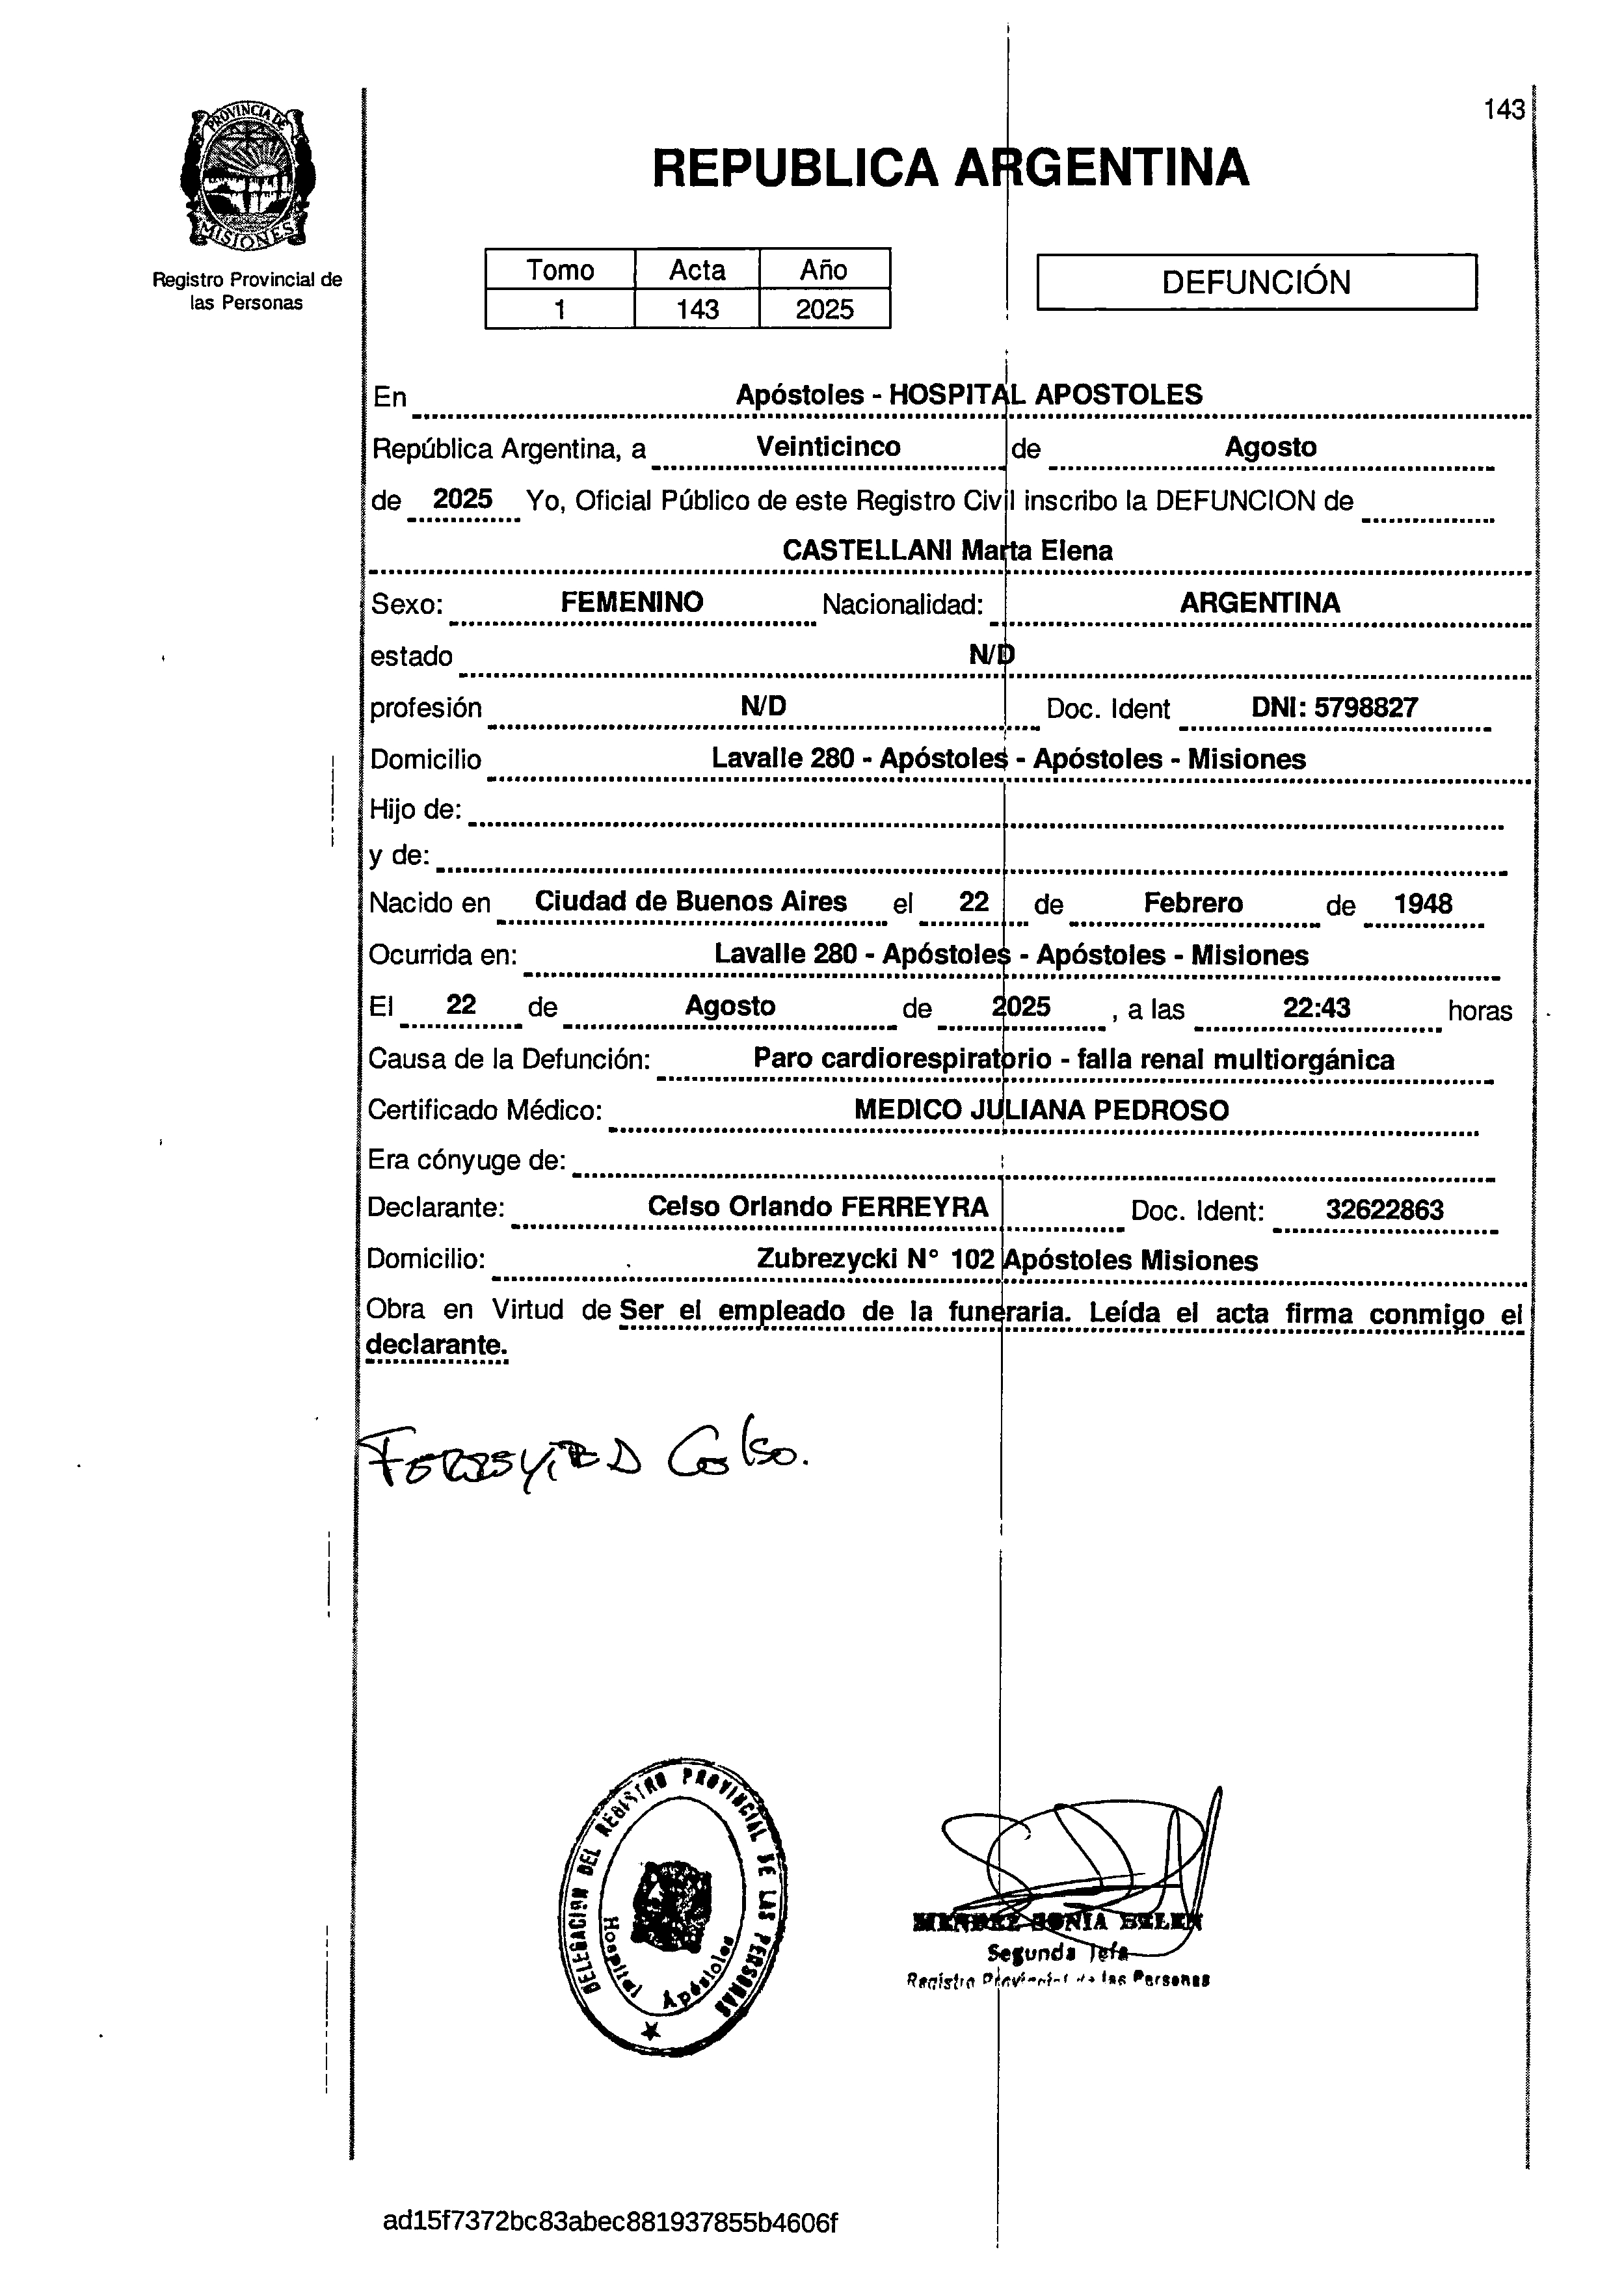 143
PROVINCIA DE
MISIONES
Registro Provincial de
las Personas
REPUBLICA ARGENTINA
Tomo Acta Año
1 143 2025
DEFUNCIÓN
En Apóstoles - HOSPITAL APOSTOLES
República Argentina, a Veinticinco de Agosto
de 2025 Yo, Oficial Público de este Registro Civil inscribo la DEFUNCION de
CASTELLANI Marta Elena
Sexo: FEMENINO Nacionalidad: ARGENTINA
estado N/D
profesión N/D Doc. Ident DNI: 5798827
Domicilio Lavalle 280 - Apóstoles - Apóstoles - Misiones
Hijo de:
y de:
Nacido en Ciudad de Buenos Aires el 22 de Febrero de 1948
Ocurrida en: Lavalle 280 - Apóstoles - Apóstoles - Misiones
El 22 de Agosto de 2025 , a las 22:43 horas
Causa de la Defunción: Paro cardiorespiratorio - falla renal multiorgánica
Certificado Médico: MEDICO JULIANA PEDROSO
Era cónyuge de:
Declarante: Celso Orlando FERREYRA Doc. Ident: 32622863
Domicilio: Zubrezycki N° 102 Apóstoles Misiones
Obra en Virtud de Ser el empleado de la funeraria. Leída el acta firma conmigo el
declarante.
FERREYRA Celso.
DELEGACION DEL REGISTRO PROVINCIAL DE LAS PERSONAS
Hospital Apóstoles
MENDEZ SONIA BELEN
Segunda Jefa
Registro Provincial de las Personas
ad15f7372bc83abec881937855b4606f